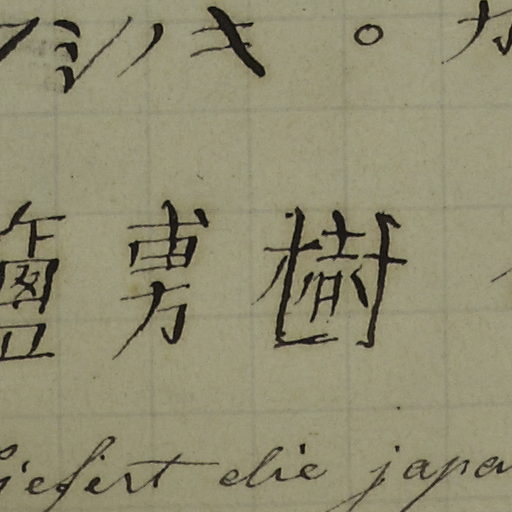 フシノキ。カ
鹽旉樹
liefert die japa